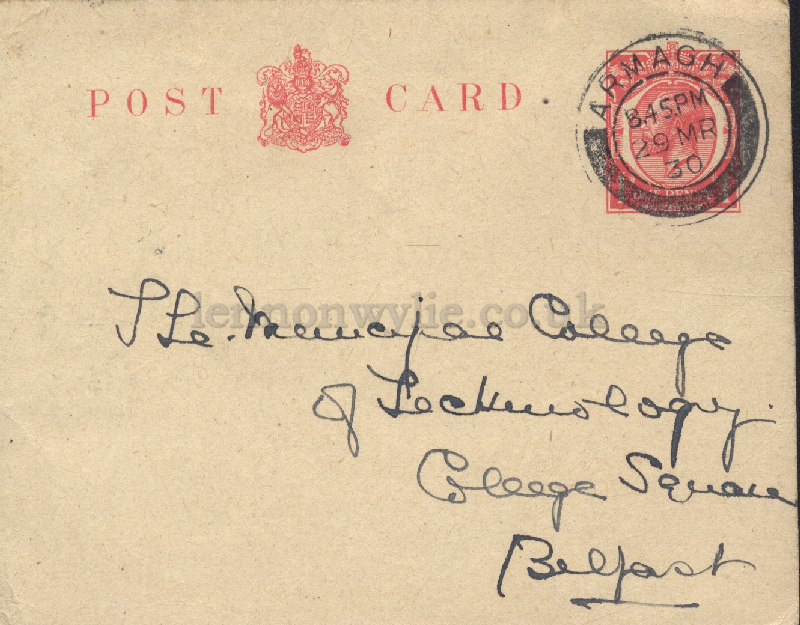 POST CARD
ARMAGH
8.45 PM
29 MR
30
lennonwylie.co.uk
The Municipal College
of Technology.
College Square
Belfast